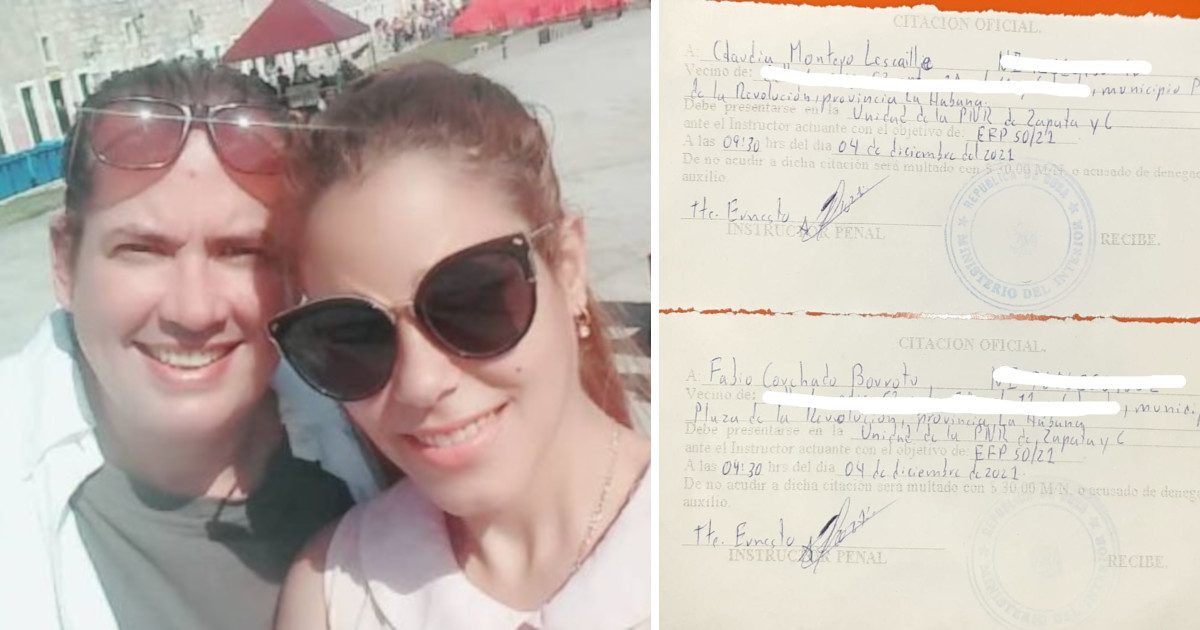 CITACION OFICIAL.
A: Claudia Montero Lescaille
Vecino de: , municipio P
de la Revolución, provincia La Habana.
Debe presentarse en la Unidad de la PNR de Zapata y C
ante el Instructor actuante con el objetivo de: EFP 50/21
A las 09:30 hrs del día 04 de diciembre del 2021
De no acudir a dicha citación será multado con $ 30.00 M/N, o acusado de denega
auxilio.
Tte. Ernesto
INSTRUCTOR PENAL
RECIBE.
REPUBLICA DE CUBA
MINISTERIO DEL INTERIOR
CITACION OFICIAL.
A: Fabio Corchado Borroto,
Vecino de: , munici
Plaza de la Revolución, provincia La Habana
Debe presentarse en la Unidad de la PNR de Zapata y C
ante el Instructor actuante con el objetivo de: EFP 50/21
A las 09:30 hrs del día 04 de diciembre de 2021.
De no acudir a dicha citación será multado con $ 30.00 M/N, o acusado de denega
auxilio.
Tte. Ernesto
INSTRUCTOR PENAL
RECIBE.